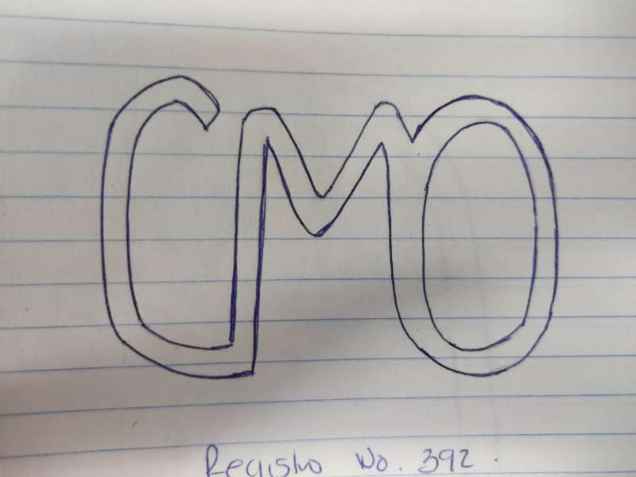 CMO
Registro No. 392.